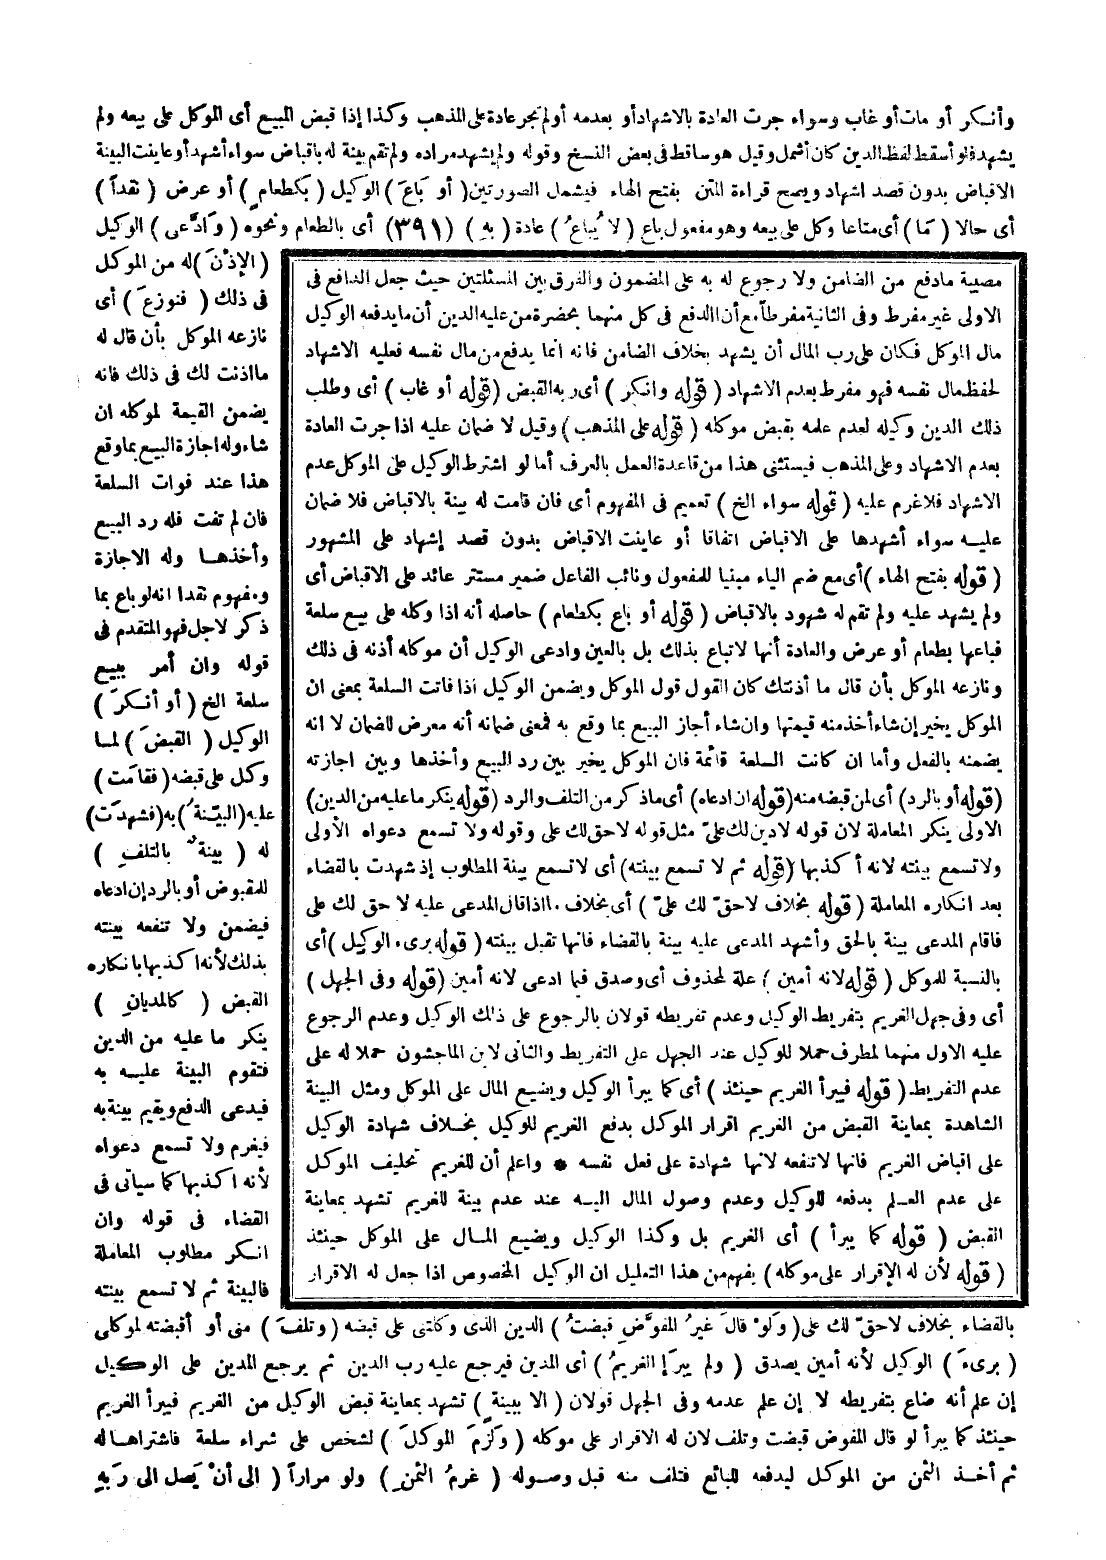 وأنكر أو مات أو غاب وسواء جرت العادة بالاشهاد أو بعدمه أو لم تجر عادة على المذهب وكذا إذا قبض المبيع أى الموكل على بيعه ولم
يشهد فلو أسقط لفظ الدين كان أشمل وقيل هو ساقط فى بعض النسخ وقوله ولم يشهد مراده ولم تقم بينة له باقباض سواء أشهد أو عاينت البينة
الاقباض بدون قصد اشهاد ويصح قراءة المتن بفتح الهاء فيشمل الصورتين (أو بَاعَ) الوكيل (بكطعامٍ) أو عرض (نقداً)
أى حالا (مَا) أى متاعا وكل على بيعه وهو مفعول باع (لا يُباعُ) عادة (بهِ) (٣٩١) أى بالطعام ونحوه (وَادَّعى) الوكيل
(الإذْنَ) له من الموكل
فى ذلك (فنوزعَ) أى
نازعه الموكل بأن قال له
ما اذنت لك فى ذلك فانه
يضمن القيمة لموكله ان
شاء وله اجازة البيع بما وقع
هذا عند فوات السلعة
فان لم تفت فله رد البيع
وأخذها وله الاجازة
ومفهوم نقدا انه لو باع بما
ذكر لاجل فهو المتقدم فى
قوله وان أمر ببيع
سلعة الخ (أو أنكرَ)
الوكيل (القبضَ) لما
وكل على قبضه (فقامَت)
عليه (البيّنةُ) به (فشهدَت)
له (بينةٌ بالتلفِ)
للمقبوض أو بالرد إن ادعاه
فيضمن ولا تنفعه بينته
بذلك لأنه اكذبها بانكاره
القبض (كالمديانِ)
ينكر ما عليه من الدين
فتقوم البينة عليه به
فيدعى الدفع ويقيم بينة به
فيغرم ولا تسمع دعواه
لأنه اكذبها كما سيأتى فى
القضاء فى قوله وان
انكر مطلوب المعاملة
فالبينة ثم لا تسمع بينته
مصيبة ما دفع من الضامن ولا رجوع له به على المضمون والفرق بين المسئلتين حيث جعل الدافع فى
الاولى غير مفرط وفى الثانية مفرطا مع أن الدفع فى كل منهما بحضرة من عليه الدين أن ما يدفعه الوكيل
مال الموكل فكان على رب المال أن يشهد بخلاف الضامن فانه انما يدفع من مال نفسه فعليه الاشهاد
لحفظ مال نفسه فهو مفرط بعدم الاشهاد (قوله وانكر) أى ربه القبض (قوله أو غاب) أى وطلب
ذلك الدين وكيله لعدم علمه بقبض موكله (قوله على المذهب) وقيل لا ضمان عليه اذا جرت العادة
بعدم الاشهاد وعلى المذهب فيستثنى هذا من قاعدة العمل بالعرف أما لو اشترط الوكيل على الموكل عدم
الاشهاد فلا غرم عليه (قوله سواء الخ) تعميم فى المفهوم أى فان قامت له بينة بالاقباض فلا ضمان
عليه سواء أشهدها على الاقباض اتفاقا أو عاينت الاقباض بدون قصد إشهاد على المشهور
(قوله بفتح الهاء) أى مع ضم الياء مبنيا للمفعول ونائب الفاعل ضمير مستتر عائد على الاقباض أى
ولم يشهد عليه ولم تقم له شهود بالاقباض (قوله أو باع بكطعام) حاصله أنه اذا وكله على بيع سلعة
فباعها بطعام أو عرض والعادة أنها لاتباع بذلك بل بالعين وادعى الوكيل أن موكله أذنه فى ذلك
ونازعه الموكل بأن قال ما أذنتك كان القول قول الموكل ويضمن الوكيل اذا فاتت السلعة بمعنى ان
الموكل يخير إن شاء أخذ منه قيمتها وان شاء أجاز البيع بما وقع به فمعنى ضمانه أنه معرض للضمان لا انه
يضمنه بالفعل وأما ان كانت السلعة قائمة فان الموكل يخير بين رد البيع وأخذها وبين اجازته
(قوله أو بالرد) أى لمن قبضه منه (قوله ان ادعاه) أى ما ذكر من التلف والرد (قوله ينكر ما عليه من الدين)
الاولى ينكر المعاملة لان قوله لا دين لك علىّ مثل قوله لا حق لك على وقوله ولا تسمع دعواه الأولى
ولا تسمع بينته لانه أكذبها (قوله ثم لا تسمع بينته) أى لا تسمع بينة المطلوب إذ شهدت بالقضاء
بعد انكاره المعاملة (قوله بخلاف لاحقّ لك علىّ) أى بخلاف ما اذا قال المدعى عليه لا حق لك على
فاقام المدعى بينة بالحق وأشهد المدعى عليه بينة بالقضاء فانها تقبل بينته (قوله برىء الوكيل) أى
بالنسبة للموكل (قوله لانه أمين) علة لمحذوف أى وصدق فيما ادعى لانه أمين (قوله وفى الجهل)
أى وفى جهل الغريم بتفريط الوكيل وعدم تفريطه قولان بالرجوع على ذلك الوكيل وعدم الرجوع
عليه الاول منهما لمطرف حملا للوكيل عند الجهل على التفريط والثانى لابن الماجشون حملا له على
عدم التفريط (قوله فيبرأ الغريم حينئذ) أى كما يبرأ الوكيل ويضيع المال على الموكل ومثل البينة
الشاهدة بمعاينة القبض من الغريم اقرار الموكل بدفع الغريم للوكيل بخلاف شهادة الوكيل
على اقباض الغريم فانها لا تنفعه لانها شهادة على فعل نفسه * واعلم أن للغريم تحليف الموكل
على عدم العلم بدفعه للوكيل وعدم وصول المال اليه عند عدم بينة للغريم تشهد بمعاينة
القبض (قوله كما يبرأ) أى الغريم بل وكذا الوكيل ويضيع المال على الموكل حينئذ
(قوله لأن له الإقرار على موكله) يفهم من هذا التعليل ان الوكيل المخصوص اذا جعل له الاقرار
بالقضاء بخلاف لاحقّ لك على (وَلوْ قالَ غيرُ المفوَّضِ قبضتُ) الدين الذى وكلتنى على قبضه (وتلفَ) منى أو أقبضته لموكلى
(برىءَ) الوكيل لأنه أمين يصدق (ولم يبرَإ الغريمُ) أى المدين فيرجع عليه رب الدين ثم يرجع المدين على الوكيل
إن علم أنه ضاع بتفريطه لا إن علم عدمه وفى الجهل قولان (الا ببينةٍ) تشهد بمعاينة قبض الوكيل من الغريم فيبرأ الغريم
حينئذ كما يبرأ لو قال المفوض قبضت وتلف لان له الاقرار على موكله (وَلَزِمَ الموكلَ) لشخص على شراء سلعة فاشتراها له
ثم أخذ الثمن من الموكل ليدفعه للبائع فتلف منه قبل وصوله (غرمُ الثمنِ) ولو مراراً (الى أنْ يَصل الى رَبهِ